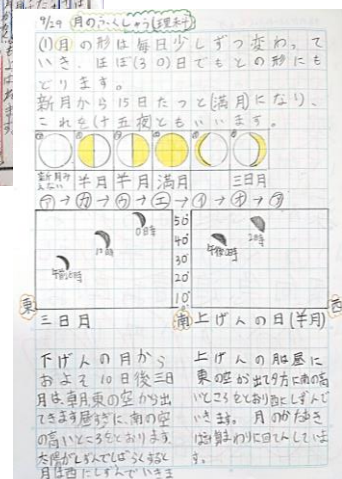 9/29 月のふくしゅう(理科)
(1)月の形は毎日少しずつ変わって
いき、ほぼ(30)日でもとの形にも
どります。
新月から15日たつと(満月)になり、
これを(十五夜)ともいいます。
新月 半月 半月 満月 三日月
50°
40°
30°
20°
10°
東 南 西
三日月 上げんの日(半月)
下げんの月から
およそ10日後三日
月は朝東の空から出
てきます昼すぎに、南の空
の高いところをとおります
太陽がしずんでしばらくすると
月は西にしずんでいきま
上げんの月は昼に
東の空が出て夕方に南の高
いところをとおり西にしずんで
いきます。月のかたむき
は時計まわりに回てんしていま
す。